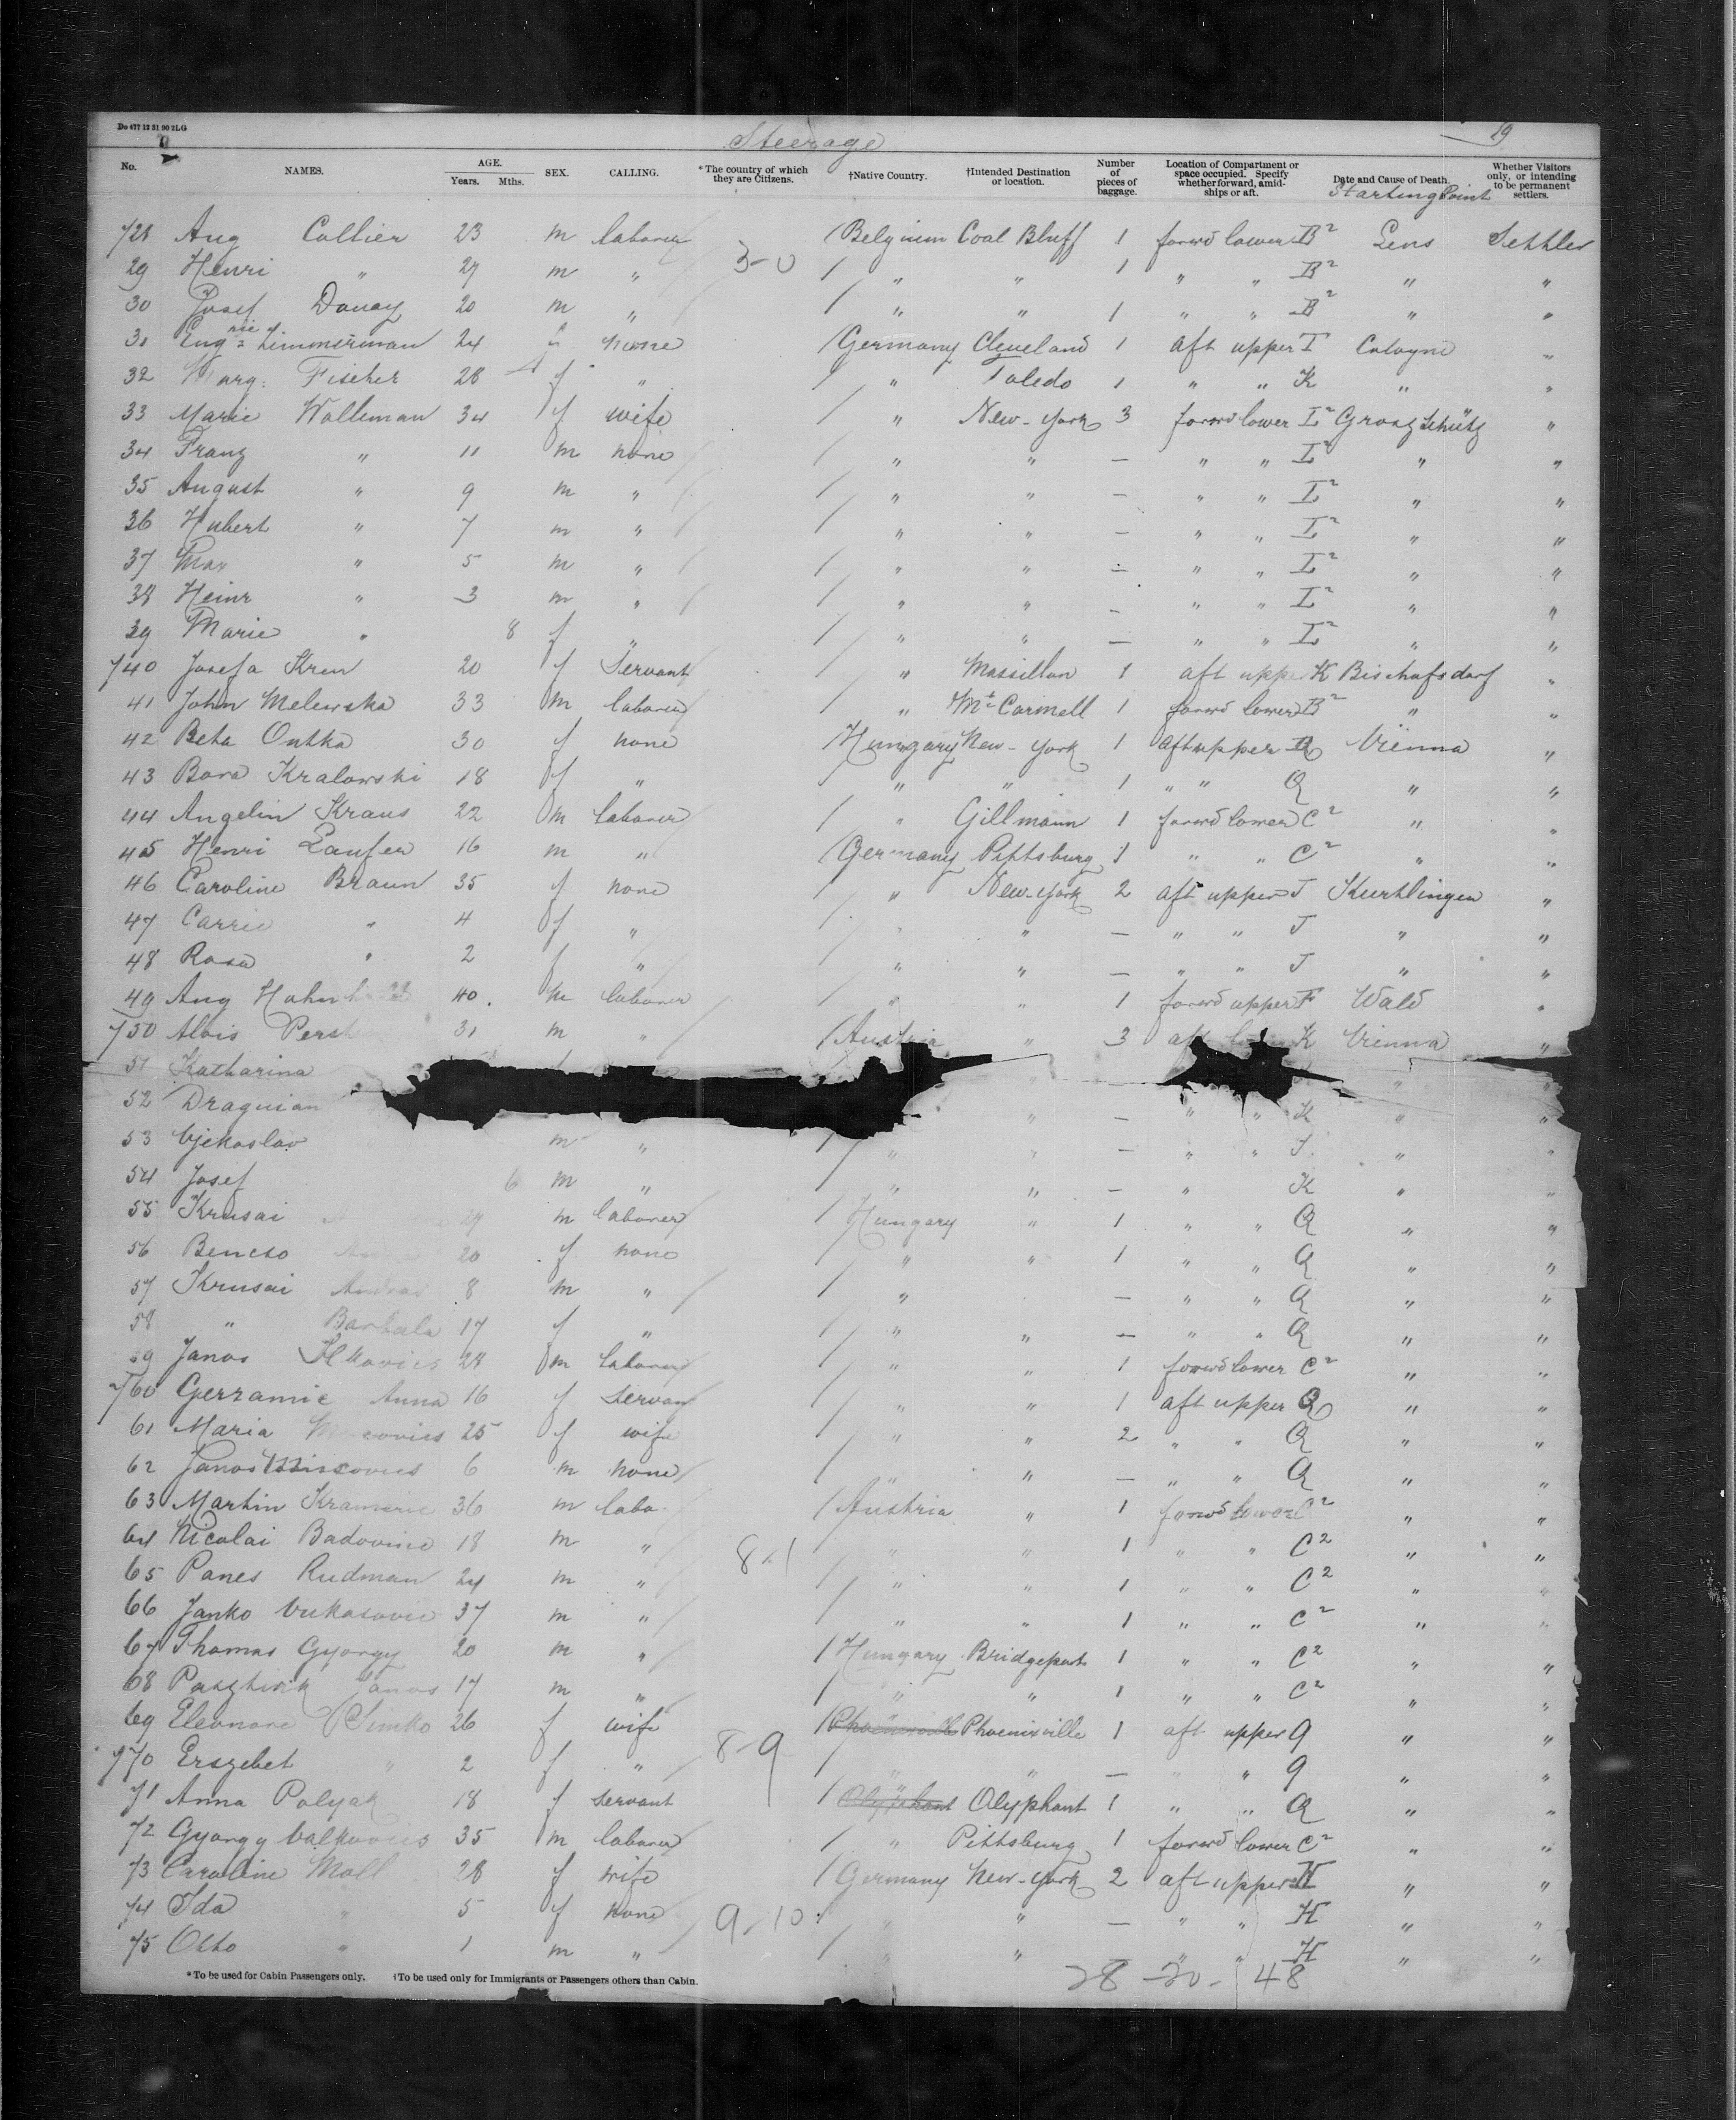 Do 477 12 31 90 2LG
Steerage 19
No. NAMES. AGE. Years. Mths. SEX. CALLING. *The country of which they are Citizens. †Native Country. †Intended Destination or location. Number of pieces of baggage. Location of Compartment or space occupied. Specify whether forward, amidships or aft. Date and Cause of Death. Starting Point Whether Visitors only, or intending to be permanent settlers.
728 Aug Collier 23 m laborer / Belgium Coal Bluff 1 forwd lower B² Lens Settler
29 Henri " 29 m " 3-0 / " " 1 " " B² " "
30 Josef Douay 20 m " / " " 1 " " B² " "
31 Zimmerman 24 f none / Germany Cleveland 1 aft upper I Cologne "
32 Marg. Fischer 28 f " / " Toledo 1 " " K " "
33 Marie Wolleman 34 f wife / " New-York 3 forwd lower L² "
34 Franz " 11 m none / " " — " " L² " "
35 August " 9 m " / " " — " " L² " "
36 Hubert " 7 m " / " " — " " L² " "
37 Max " 5 m " / " " — " " L² " "
38 Heinr " 3 m " / " " — " " L² " "
39 Marie " 8 f " / " " — " " L² " "
740 Josefa Kren 20 f Servant / " Massillon 1 aft upper K Bischofsdorf "
41 John Melewska 33 m laborer / " Mt Carmell 1 forwd lower B² " "
42 Beta Ontka 30 f none / Hungary New-York 1 aft upper Q Vienna "
43 Bora Kralowski 18 f " / " " 1 " " Q " "
44 Angelin Kraus 22 m laborer / " Gillmann 1 forwd lower C² " "
45 Henri Laufer 16 m " / Germany Pittsburg 1 " " C² " "
46 Caroline Braun 35 f none / " New-York 2 aft upper J Kurtlingen "
47 Carrie " 4 f " / " " — " " J " "
48 Rosa " 2 f " / " " — " " J " "
49 Aug 40 m laborer / " " 1 forwd upper F Wald "
750 Alois 31 m " / Austria " 3 aft K Vienna "
51 Katharina " "
52 Draguian " — " " K " "
53 Vjekoslav m " / " " — " " J " "
54 Josef 6 m " / " " — " K " "
55 Krusai m laborer / Hungary " 1 " " Q " "
56 Bencso 20 f none / " " 1 " " Q " "
57 Krusai Andras 8 m " / " — " " Q " "
58 " Barbala 17 f " / " " — " " Q " "
59 Janos Ilkovics 28 m laborer / " " 1 forwd lower C² " "
760 Gerzamic Anna 16 f Servan / " " 1 aft upper Q " "
61 Maria 25 f wife / " " 2 " " Q " "
62 Janos 6 m none / " " — " " Q " "
63 Martin Krameric 36 m labo. / Austria " 1 forwd lower C² " "
64 Nicolai Badovinc 18 m " 8-1 / " " 1 " " C² " "
65 Panes Rudman 24 m " / " " 1 " " C² " "
66 Janko Vukasovic 37 m " / " " 1 " " C² " "
67 Thomas Gyorgy 20 m " / Hungary Bridgeport 1 " " C² " "
68 Janos 17 m " / " " 1 " " C² " "
69 Eleonore Simko 26 f wife / Phoenixville Phoenixville 1 aft upper 9 " "
770 Erszebet " 2 f " 8-9 / " " — " " 9 " "
71 Anna Polyak 18 f servant / Olyphant Olyphant 1 " " Q " "
72 Gyorgy Valkovics 35 m laborer / " Pittsburg 1 forwd lower C² " "
73 Caroline Moll 28 f wife / Germany New-York 2 aft upper H " "
74 Ida " 5 f none 9-10 / " " — " " H " "
75 Otto " 1 m " / " " " " H " "
*To be used for Cabin Passengers only. †To be used only for Immigrants or Passengers others than Cabin.
28 - 20 - 48